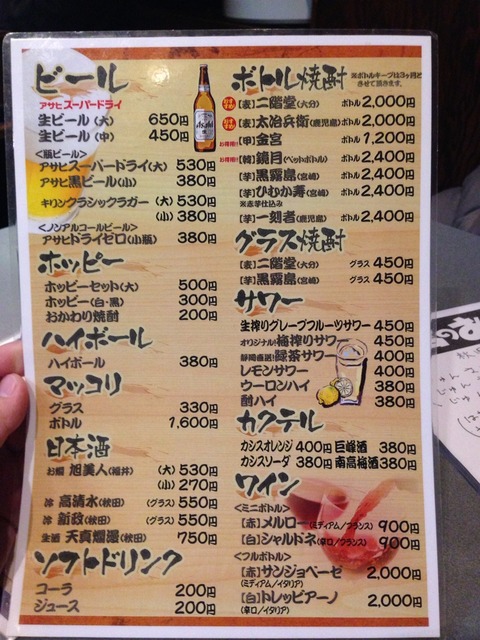 ビール
アサヒスーパードライ
生ビール(大) 650円
生ビール(中) 450円
<瓶ビール>
アサヒスーパードライ(大) 530円
アサヒ黒ビール(小) 380円
キリンクラシックラガー(大) 530円
(小) 380円
<ノンアルコールビール>
アサヒドライゼロ(小瓶) 380円
ホッピー
ホッピーセット(大) 500円
ホッピー(白・黒) 300円
おかわり焼酎 200円
ハイボール
ハイボール 380円
マッコリ
グラス 330円
ボトル 1,600円
日本酒
お燗 旭美人(福井) (大) 530円
(小) 270円
冷 高清水(秋田) (グラス) 550円
冷 新政(秋田) (グラス) 550円
生酒 天真爛漫(秋田) 750円
ソフトドリンク
コーラ 200円
ジュース 200円
ボトル焼酎
※ボトルキープは3ヶ月と
させて頂きます。
おすすめ [麦]二階堂(大分) ボトル 2,000円
おすすめ [麦]太治兵衛(鹿児島) ボトル 2,000円
お得用!! [甲]金宮 ボトル 1,200円
お得用!! [韓]鏡月(ペットボトル) ボトル 2,400円
[芋]黒霧島(宮崎) ボトル 2,400円
[芋]ひむか寿(宮崎) ボトル 2,400円
※赤芋仕込み
[芋]一刻者(鹿児島) ボトル 2,400円
グラス焼酎
[麦]二階堂(大分) グラス 450円
[芋]黒霧島(宮崎) グラス 450円
サワー
生搾りグレープフルーツサワー 450円
オリジナル!梅搾りサワー 450円
静岡直送!緑茶サワー 400円
レモンサワー 400円
ウーロンハイ 380円
酎ハイ 380円
カクテル
カシスオレンジ 400円 巨峰酒 380円
カシスソーダ 380円 南高梅酒 380円
ワイン
<ミニボトル>
[赤]メルロー(ミディアム/フランス) 900円
[白]シャルドネ(辛口/フランス) 900円
<フルボトル>
[赤]サンジョベーゼ 2,000円
(ミディアム/イタリア)
[白]トレッビアーノ 2,000円
(辛口/イタリア)